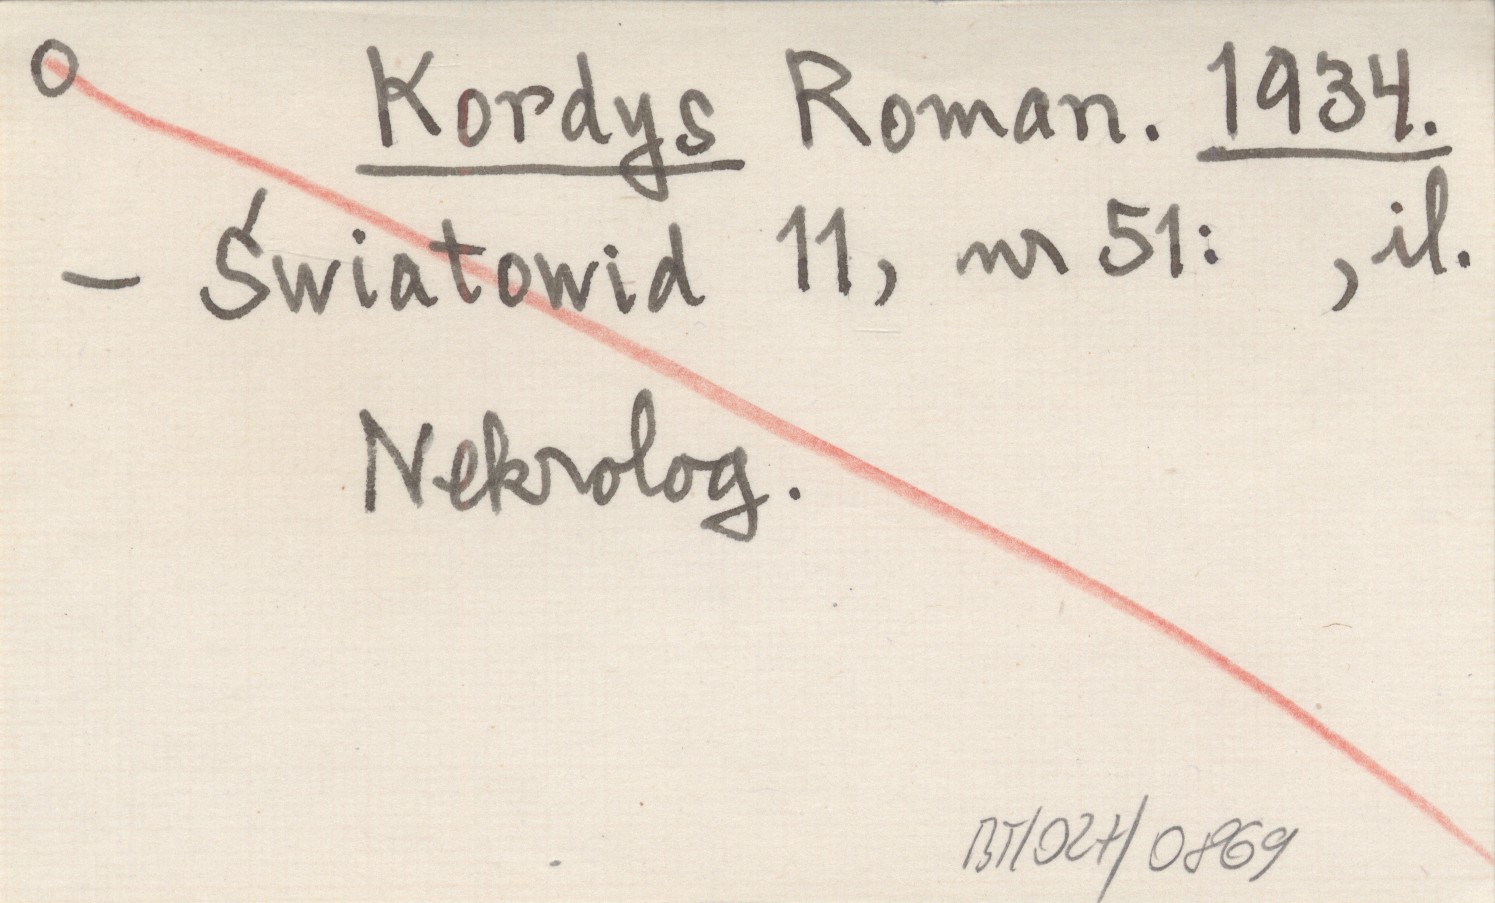 O Kordys Roman. 1934.
– Światowid 11, nr 51: , il.
Nekrolog.
BT/027/0869